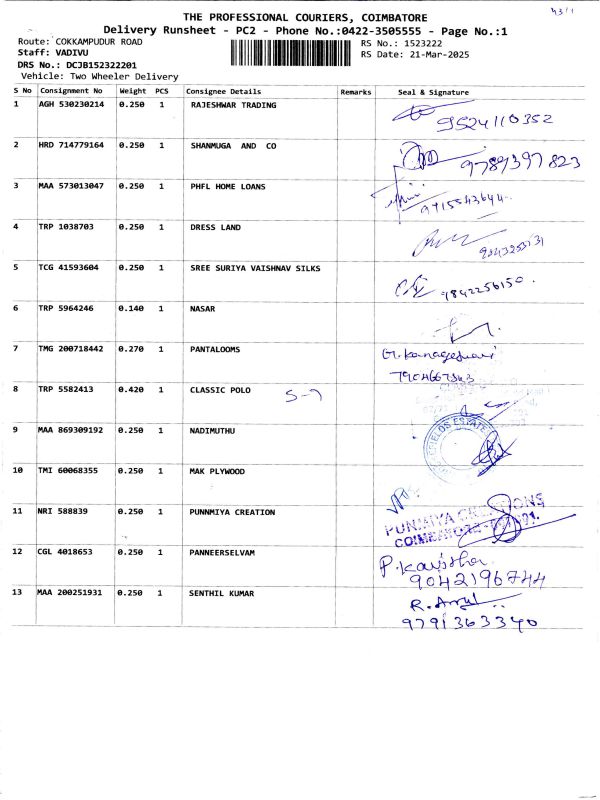 43/1
THE PROFESSIONAL COURIERS, COIMBATORE
Delivery Runsheet - PC2 - Phone No.:0422-3505555 - Page No.:1
Route: COKKAMPUDUR ROAD RS No.: 1523222
Staff: VADIVU RS Date: 21-Mar-2025
DRS No.: DCJB152322201
Vehicle: Two Wheeler Delivery
S No Consignment No Weight PCS Consignee Details Remarks Seal & Signature
1 AGH 530230214 0.250 1 RAJESHWAR TRADING
9524110352
2 HRD 714779164 0.250 1 SHANMUGA AND CO
9789397823
3 MAA 573013047 0.250 1 PHFL HOME LOANS
9715543644
4 TRP 1038703 0.250 1 DRESS LAND
5 TCG 41593604 0.250 1 SREE SURIYA VAISHNAV SILKS
9842256150
6 TRP 5964246 0.140 1 NASAR
7 TMG 200718442 0.270 1 PANTALOOMS
8 TRP 5582413 0.420 1 CLASSIC POLO S-7
9 MAA 869309192 0.250 1 NADIMUTHU
10 TMI 60068355 0.250 1 MAK PLYWOOD
11 NRI 588839 0.250 1 PUNNMIYA CREATION
PUNMIYA CREATIONS
COIMBATORE
12 CGL 4018653 0.250 1 PANNEERSELVAM P. Kavitha
9042196744
13 MAA 200251931 0.250 1 SENTHIL KUMAR R. Arul
9791363340